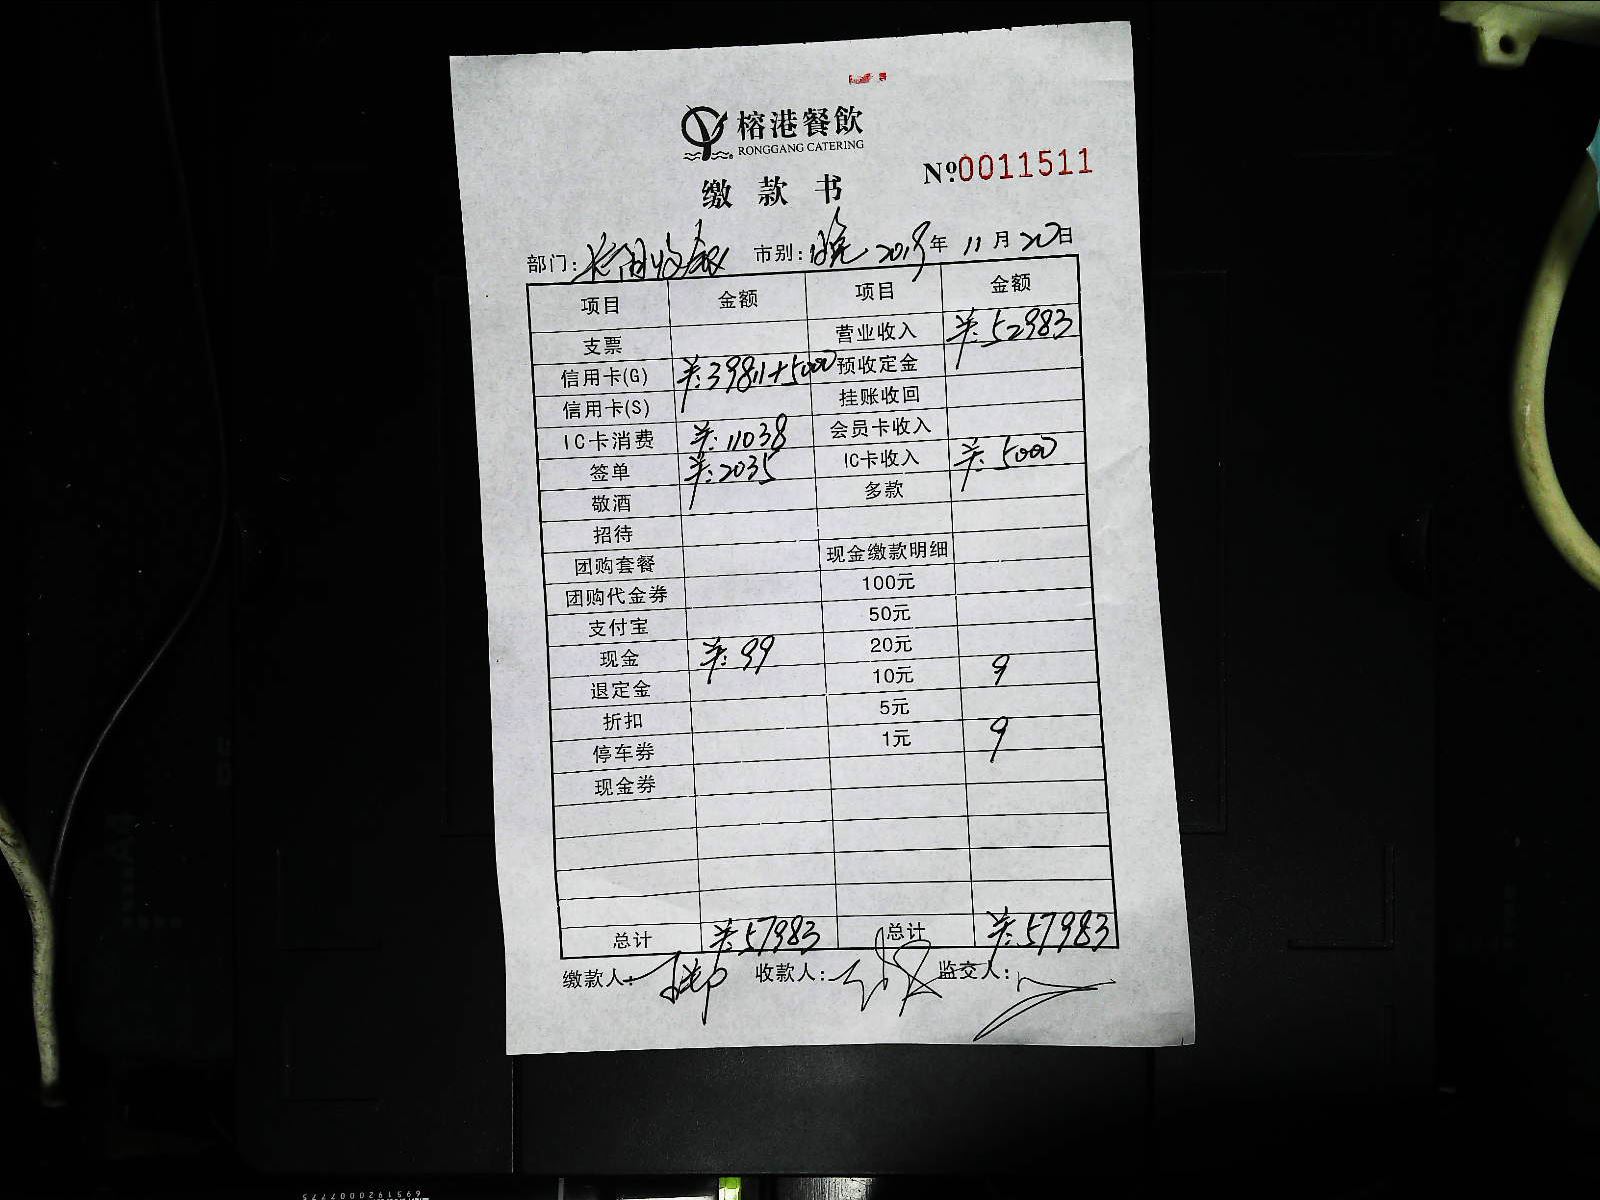 榕港餐飲
RONGGANG CATERING
缴款书
Nº0011511
部门: 市别: 晚 2019年 11月 20日
项目 金额 项目 金额
支票 营业收入 ¥:52983
信用卡(G) ¥:39811+5000 预收定金
信用卡(S) 挂账收回
IC卡消费 ¥:11038 会员卡收入
签单 ¥:2035 IC卡收入 ¥:5000
敬酒 多款
招待
团购套餐 现金缴款明细
团购代金券 100元
支付宝 50元
现金 ¥:99 20元
退定金 10元 9
折扣 5元
停车券 1元 9
现金券
总计 ¥:57983 总计 ¥:57983
缴款人: 收款人: 监交人: